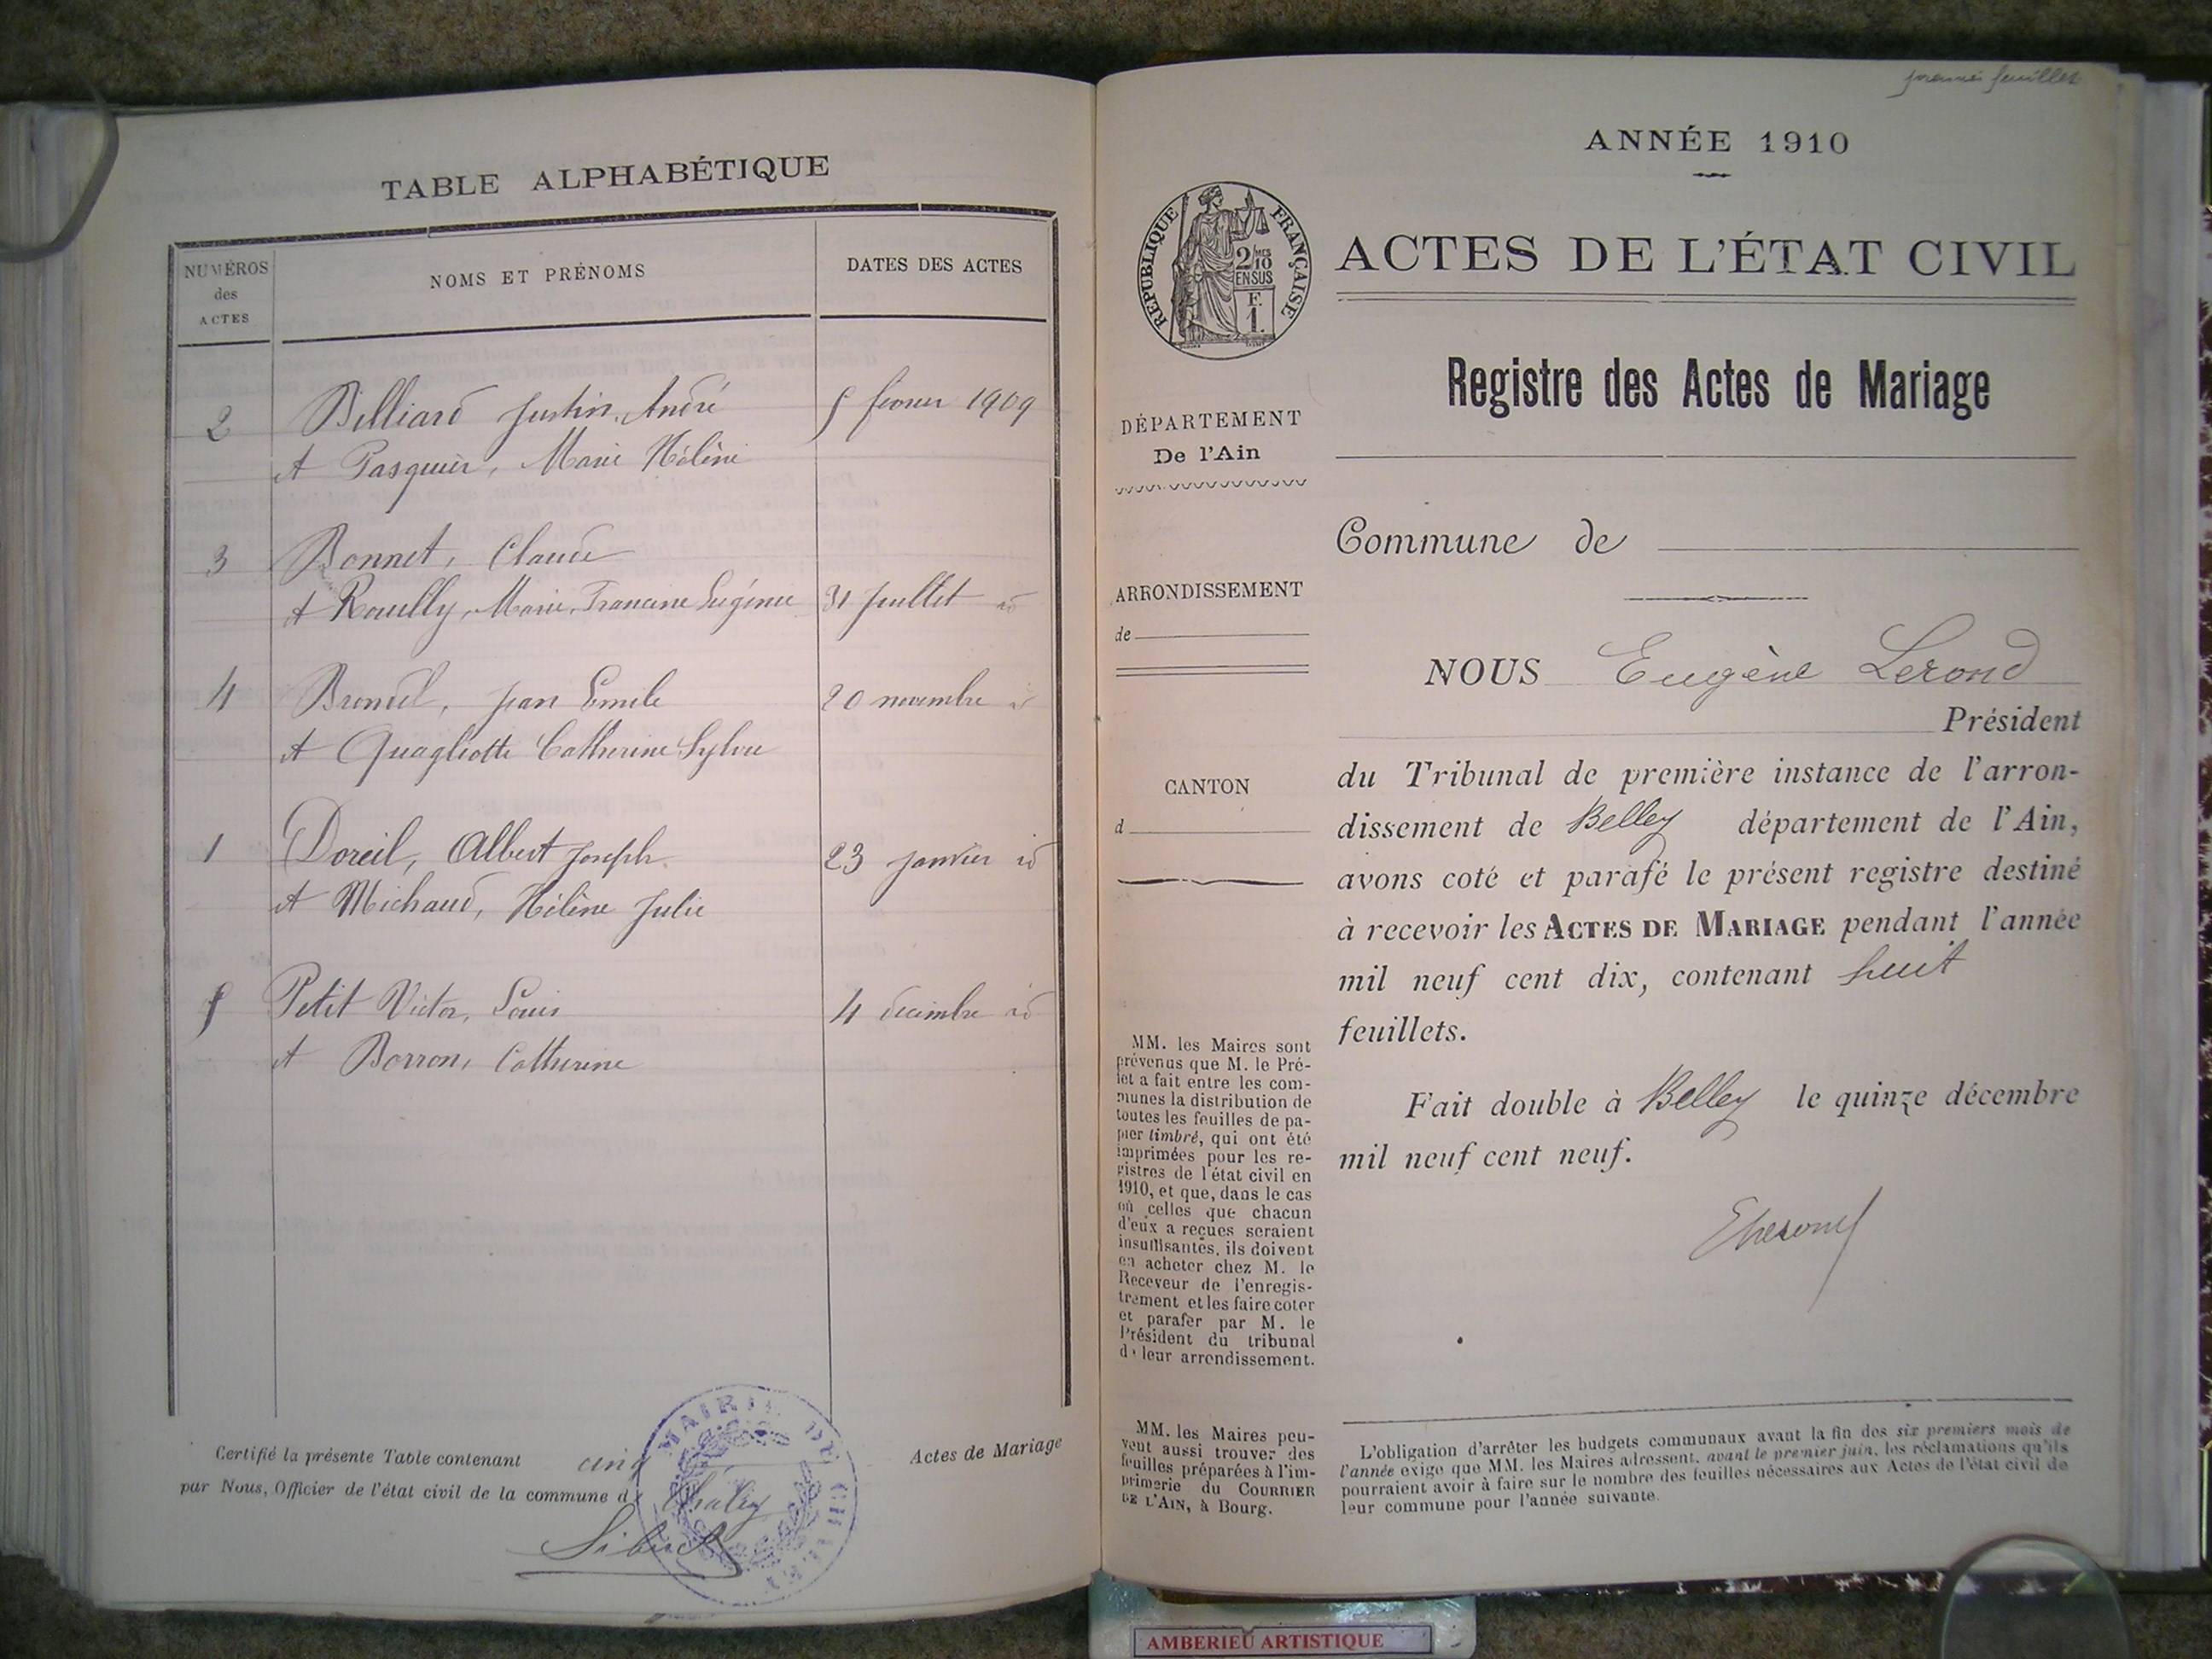 TABLE ALPHABÉTIQUE
NUMÉROS des ACTES
NOMS ET PRÉNOMS
DATES DES ACTES
2 Billiard Justin, André 5 février 1909
et Pasquier, Marie Hélène
3 Bonnet, Claude
et Rouilly, Marie, Francine Eugénie 31 Juillet id
4 Jean Emile 20 novembre id
et Quagliotti Catherine Sylvie
1 Doreil, Albert Joseph. 23 janvier id
et Michaud, Hélène Julie
5 Petit Victor, Louis 4 décembre id
et Borron, Catherine
Certifié la présente Table contenant cinq Actes de Mariage
par Nous, Officier de l'état civil de la commune de Chaley
MAIRIE DE CHALEY
premier feuillet
ANNÉE 1910
RÉPUBLIQUE FRANÇAISE
2/10 MES
EN SUS
F.
1.
ACTES DE L'ÉTAT CIVIL
Registre des Actes de Mariage
DÉPARTEMENT
De l'Ain
Commune de
ARRONDISSEMENT
de
CANTON
d
NOUS Eugène Lerond
Président
du Tribunal de première instance de l'arron-
dissement de Belley département de l'Ain,
avons coté et parafé le présent registre destiné
à recevoir les ACTES DE MARIAGE pendant l'année
mil neuf cent dix, contenant huit
feuillets.
Fait double à Belley le quinze décembre
mil neuf cent neuf.
MM. les Maires sont
prévenus que M. le Pré-
fet a fait entre les com-
munes la distribution de
toutes les feuilles de pa-
pier timbré, qui ont été
imprimées pour les re-
gistres de l'état civil en
1910, et que, dans le cas
où celles que chacun
d'eux a reçues seraient
insuffisantes, ils doivent
en acheter chez M. le
Receveur de l'enregis-
trement et les faire coter
et parafer par M. le
Président du tribunal
de leur arrondissement.
MM. les Maires peu-
vent aussi trouver des
feuilles préparées à l'im-
primerie du COURRIER
DE L'AIN, à Bourg.
L'obligation d'arrêter les budgets communaux avant la fin des six premiers mois de
l'année exige que MM. les Maires adressent, avant le premier juin, les réclamations qu'ils
pourraient avoir à faire sur le nombre des feuilles nécessaires aux Actes de l'état civil de
leur commune pour l'année suivante.
AMBERIEU ARTISTIQUE